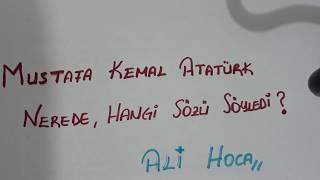 MUSTAFA KEMAL ATATÜRK
NEREDE, HANGİ SÖZÜ SÖYLEDİ?
ALİ HOCA,,